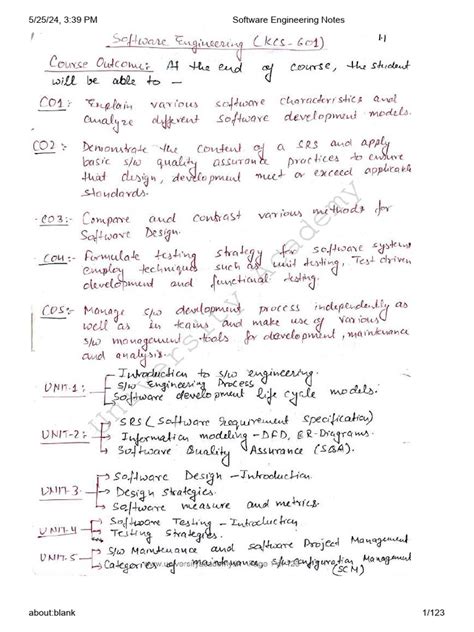 5/25/24, 3:39 PM Software Engineering Notes
Software Engineering (KCS-601)
Course Outcome:- At the end of course, the student
will be able to —
CO1:- Explain various software characteristics and
analyze different software development models.
CO2:- Demonstrate the content of a SRS and apply
basic s/w quality assurance practices to ensure
that design, development meet or exceed applicable
standards.
CO3:- Compare and contrast various methods for
Software Design.
CO4:- Formulate testing strategy for software systems
employ techniques such as unit testing, Test driven
development and functional testing.
CO5:- Manage s/w development process independently as
well as in teams and make use of various
s/w management tools for development, maintenance
and analysis.
UNIT-1:- Introduction to s/w engineering.
S/w Engineering Process
Software development life cycle models.
UNIT-2:- SRS (Software Requirement Specification)
Information modeling - DFD, ER-Diagrams.
Software Quality Assurance (SQA).
UNIT-3- Software Design - Introduction.
Design strategies.
Software measure and metrics.
UNIT-4 Software Testing - Introduction
Testing Strategies.
UNIT-5- S/w Maintenance and software Project Management
Categories of maintenance s/w configuration Management
(SCM)
University Academy
about:blank 1/123